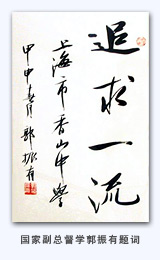 追求一流
上海市香山中学
甲申春月 郭振有
国家副总督学郭振有题词